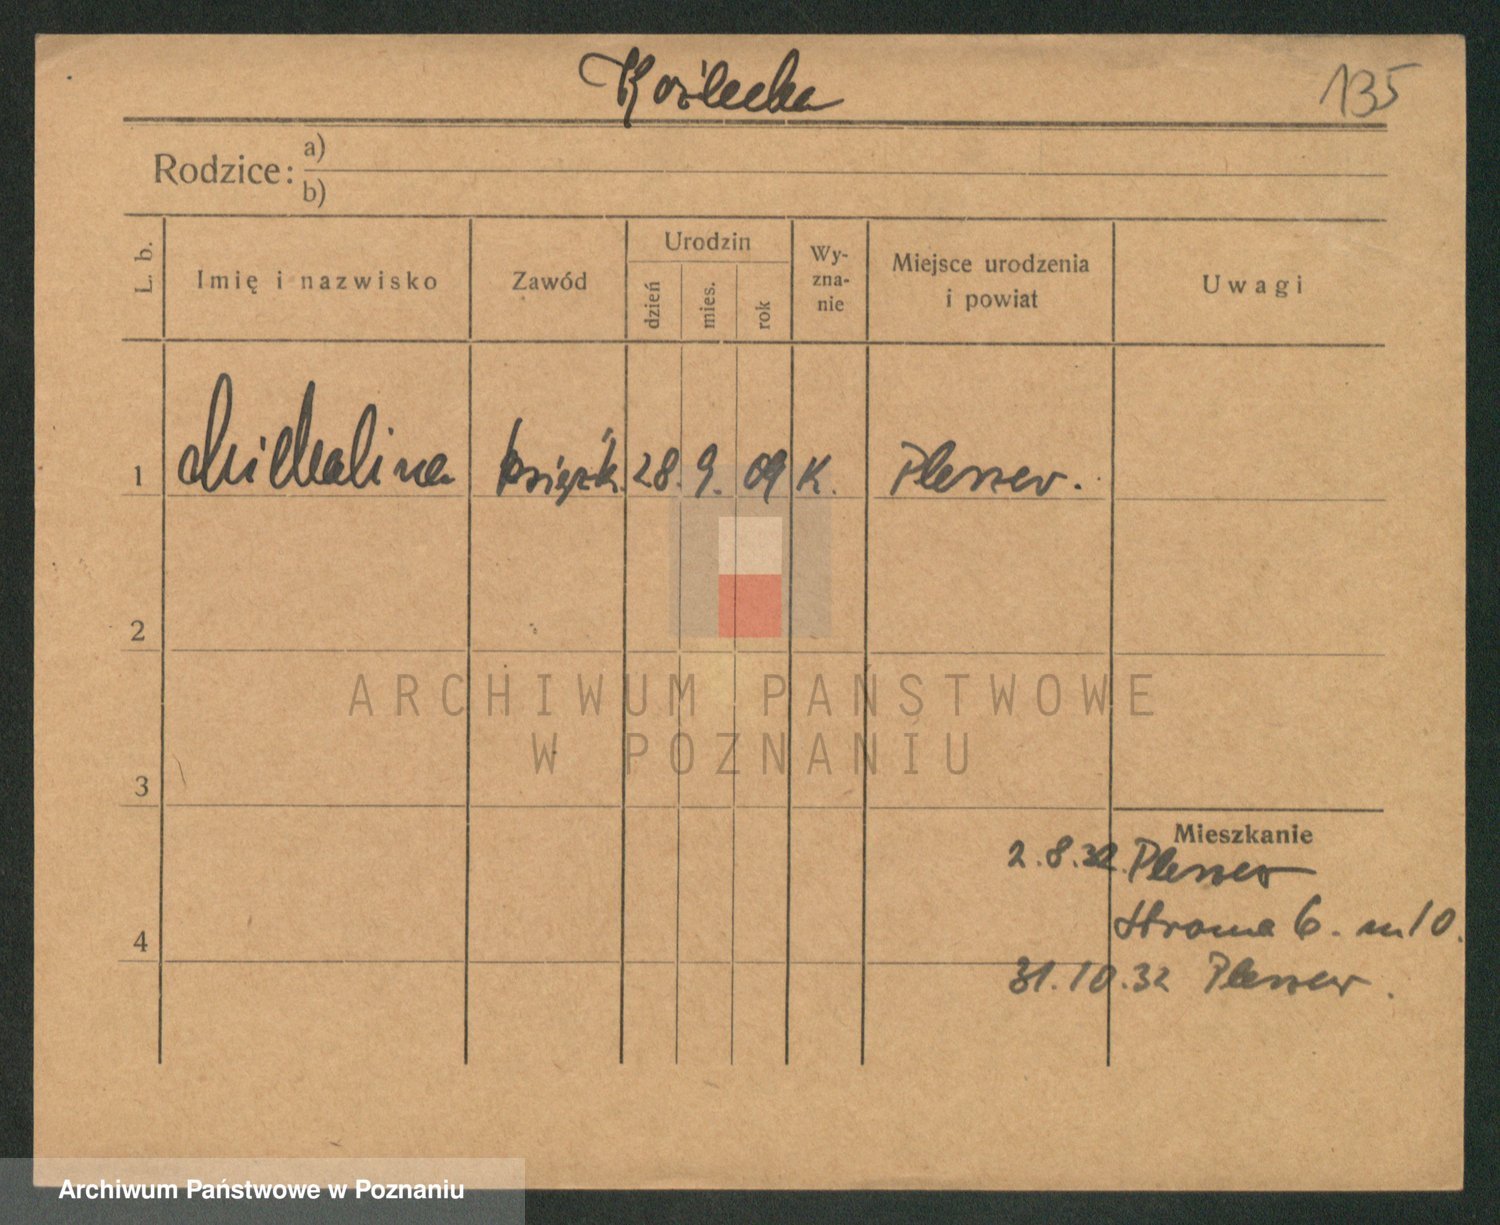 Koźlecka
135
Rodzice: a)
b)
L. b.
Imię i nazwisko
Zawód
Urodzin
dzień
mies.
rok
Wy-
zna-
nie
Miejsce urodzenia
i powiat
Uwagi
1 Michalina książk. 28. 9. 09 K. Pleszew.
2
ARCHIWUM PAŃSTWOWE
W POZNANIU
3
Mieszkanie
2.8.32. Pleszew
4
Stroma 6. m 10.
31.10.32 Pleszew.
Archiwum Państwowe w Poznaniu